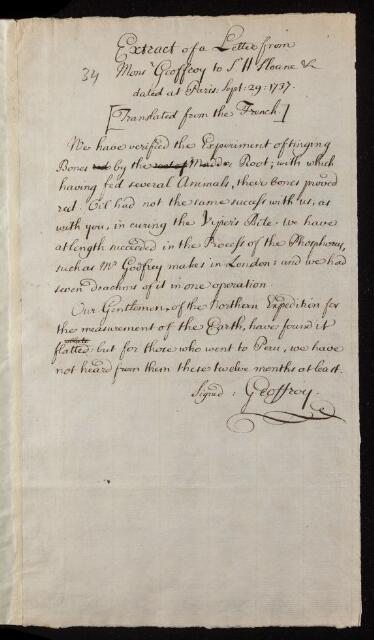 Extract of a Letter from
34
Monsr. Geoffroy to Sr. H Sloane &c
dated at Paris. Sept: 29: 1737.
[Translated from the French]
We have verified the Experiment of tinging
Bones red by the root of Madder Root; with which
having fed several Animals, their bones proved
red. Oil had not the same success with us, as
with you, in curing the Viper's Bite. We have
at length succeeded in the Process of the Phosphorus,
such as Mr. Godfrey makes in London: and we had
seven drachms of it in one operation.
Our Gentlemen of the Northern Expedition for
the measurement of the Earth, have found it
flatted: but for those who went to Peru, we have
not heard from them these twelve months at least.
Signed: Geoffroy.